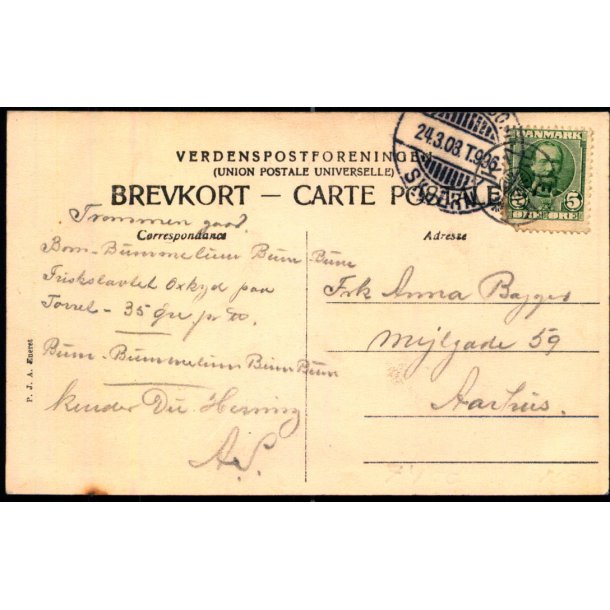 VERDENSPOSTFORENINGEN
(UNION POSTALE UNIVERSELLE)
BREVKORT — CARTE POSTALE
Trommen gaad.
Correspondance
Bom-Bummelium Bum-Bum
Friskslavtet Oxkyd paa
Torvet - 35 Øre pr
Bum-Bummelium Bum Bum
kender Du Herning
A.S.
Adresse
Frk Anna Bagger
Mejlgade 59
Aarhus.
P. J. A. Eneret
24.3.08.T.
DANMARK
5 5
ØRE